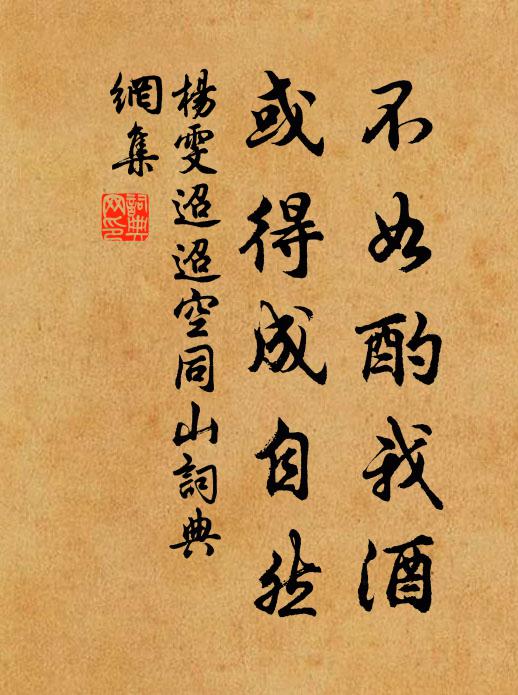 不如酌我酒
或得成自然
楊雯迢迢空同山詞典
網集
詞典
网印